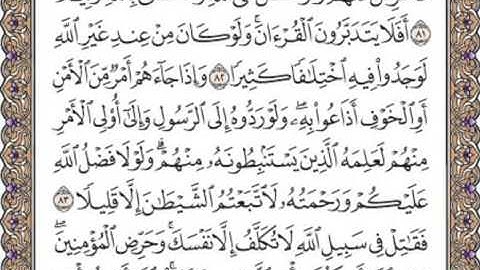 أَفَلَا يَتَدَبَّرُونَ ٱلْقُرْءَانَ ۚ وَلَوْ كَانَ مِنْ عِندِ غَيْرِ ٱللَّهِ
لَوَجَدُوا۟ فِيهِ ٱخْتِلَـٰفًا كَثِيرًا ٨٢ وَإِذَا جَآءَهُمْ أَمْرٌ مِّنَ ٱلْأَمْنِ
أَوِ ٱلْخَوْفِ أَذَاعُوا۟ بِهِۦ ۖ وَلَوْ رَدُّوهُ إِلَى ٱلرَّسُولِ وَإِلَىٰٓ أُو۟لِى ٱلْأَمْرِ
مِنْهُمْ لَعَلِمَهُ ٱلَّذِينَ يَسْتَنۢبِطُونَهُۥ مِنْهُمْ ۗ وَلَوْلَا فَضْلُ ٱللَّهِ
عَلَيْكُمْ وَرَحْمَتُهُۥ لَٱتَّبَعْتُمُ ٱلشَّيْطَـٰنَ إِلَّا قَلِيلًا ٨٣
فَقَـٰتِلْ فِى سَبِيلِ ٱللَّهِ لَا تُكَلَّفُ إِلَّا نَفْسَكَ ۚ وَحَرِّضِ ٱلْمُؤْمِنِينَ ۖ